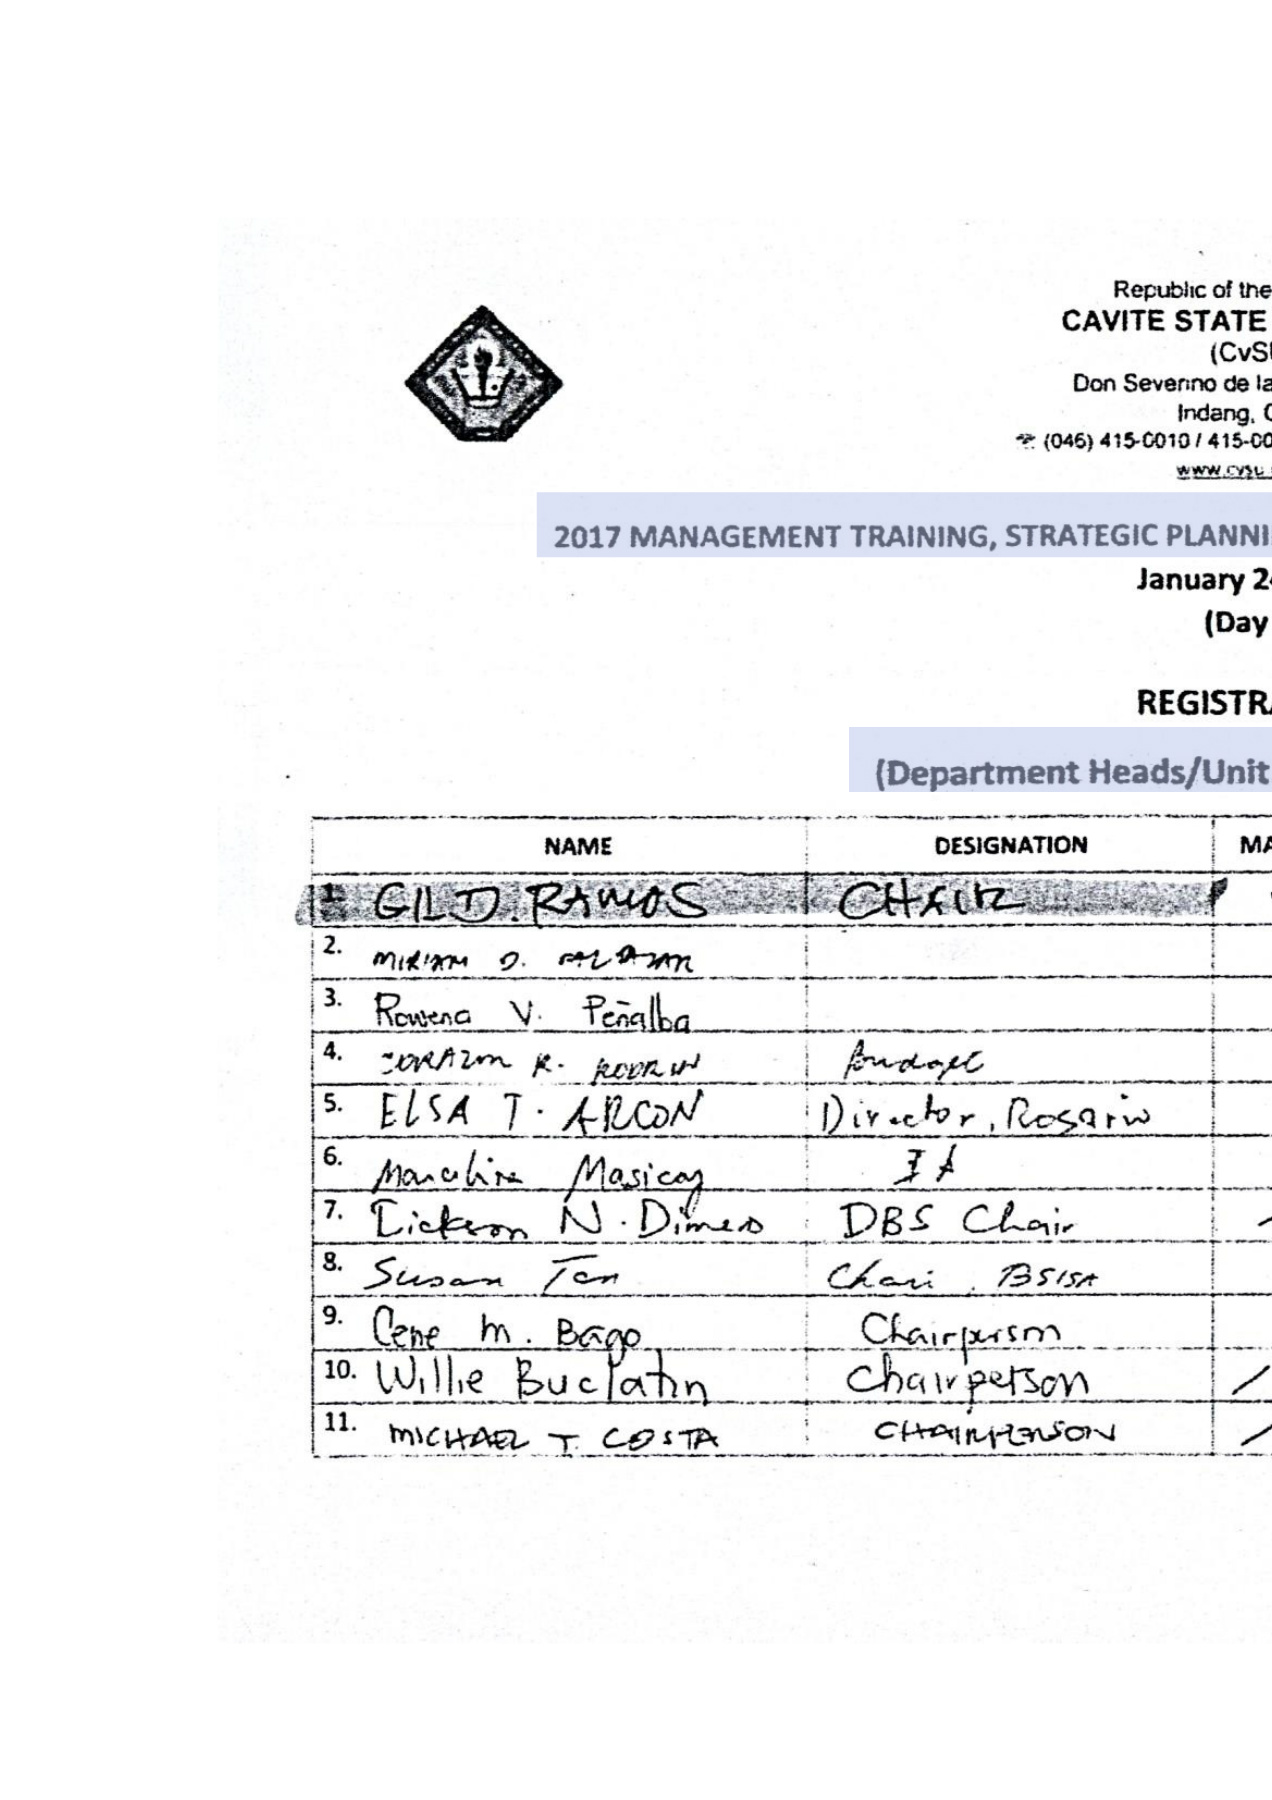 Republic of the
CAVITE STATE
(CvSU
Don Severino de la
Indang, C
☎ (046) 415-0010 / 415-00
www.cvsu.
2017 MANAGEMENT TRAINING, STRATEGIC PLANNI
January 24
(Day
REGISTRA
(Department Heads/Unit
NAME DESIGNATION MA
1. GIL D. RAMOS CHAIR
2. MIRIAM D.
3. Rowena V. Peñalba
4. CORAZON R.
5. ELSA T. ARCON Director, Rosario
6. Masicay IA
7. Dickson N. Dimero DBS Chair
8. Susan Tan Chair BSISA
9. Cene M. Bago Chairperson
10. Willie Buclatin Chairperson
11. MICHAEL T. COSTA CHAIRPERSON